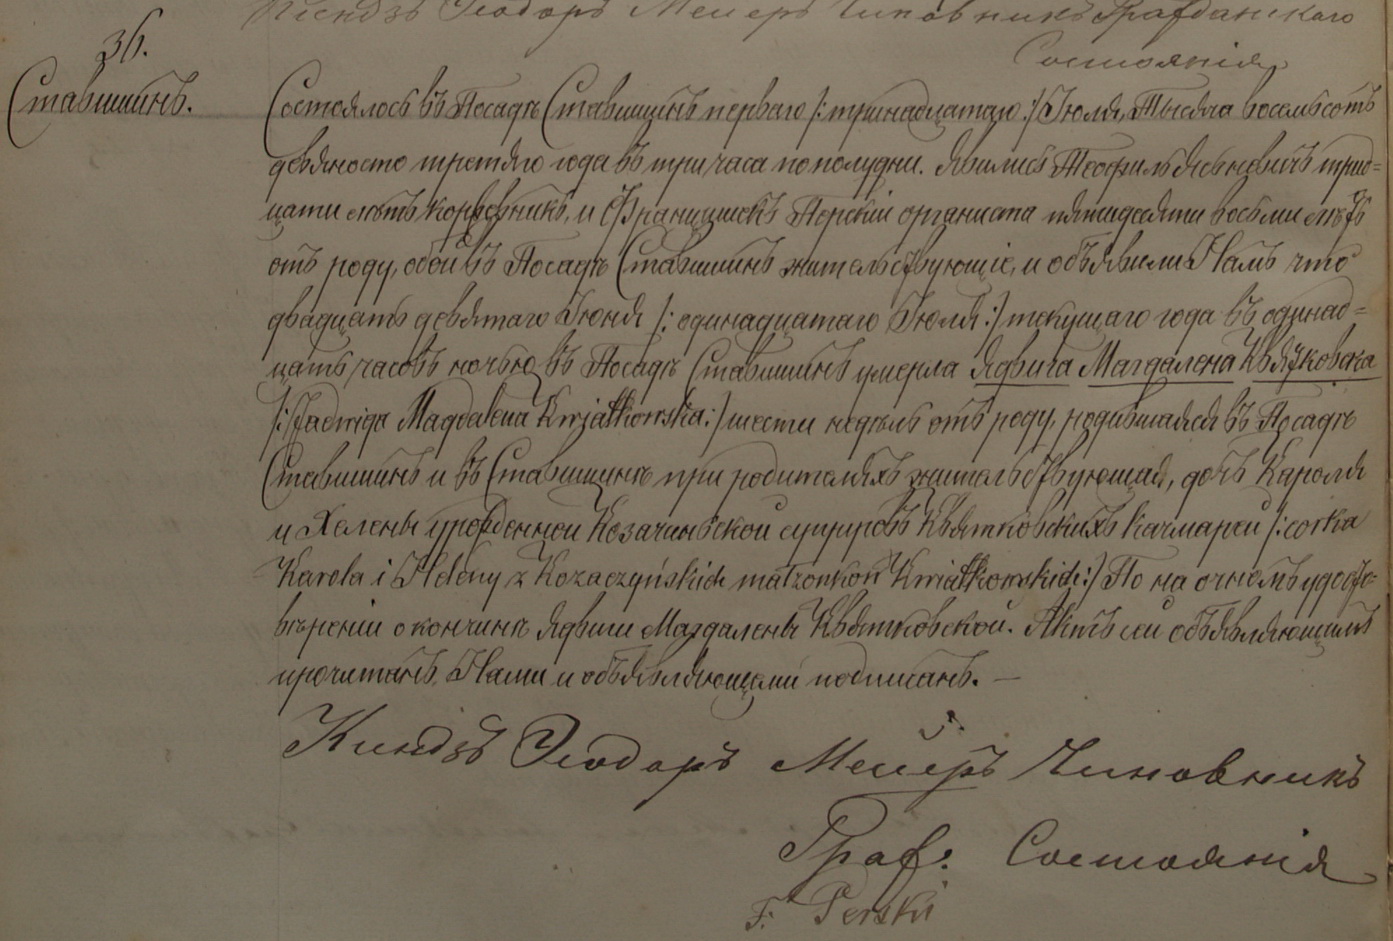 Ксендзъ Ѳеодоръ Мейеръ Чиновникъ Гражданскаго
Состоянія
36.
Ставишинъ.
Состоялось въ Посадѣ Ставишинѣ перваго /: тринадцатаго :/ Іюля, Тысяча восемьсотъ
девяносто третяго года въ три часа пополудни. Явились Теофиль Яснѣвичъ трид=
цати лѣтъ, и Францишекъ Перскій органиста пятидесяти восьми лѣтъ
отъ роду, обой въ Посадѣ Ставишинѣ жительствующіе, и объявили Намъ что
двадцать девятаго Іюня /: одинадцатаго Іюля :/ текущаго года въ одинад=
цать часовъ ночью въ Посадѣ Ставишинѣ умерла Ядвига Магдалена Квятковска
/: Jadwiga Magdalena Kwiatkowska :/ шести недѣль отъ роду, родившаяся въ Посадѣ
Ставишинѣ и въ Ставишинѣ при родителяхъ жительствующая, дочь Кароля
и Хелены урожденной Козачинской супруговъ Квятковскихъ Качмарей /: corka
Karola i Heleny z Kozaczyńskich małżonkow Kwiatkowskich :/ По на очномъ удосто=
вѣреніи о кончинѣ Ядвиги Магдалены Квятковской. Актъ сей объявляющимъ
прочитанъ, Нами и объявляющими подписанъ. —
Ксендзъ Ѳеодоръ Мейеръ Чиновникъ
Граж. Состоянія
F. Perski